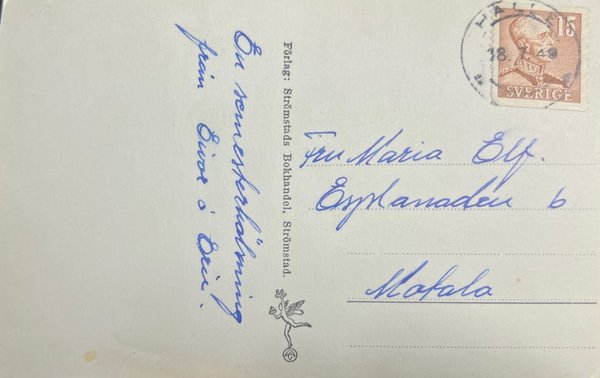 En semesterhälsning
från Eivor o Eric.
Förlag: Strömstads Bokhandel, Strömstad.
15
18.7.49
SVERIGE
Fru Maria Elf.
Esplanaden 6
Motala